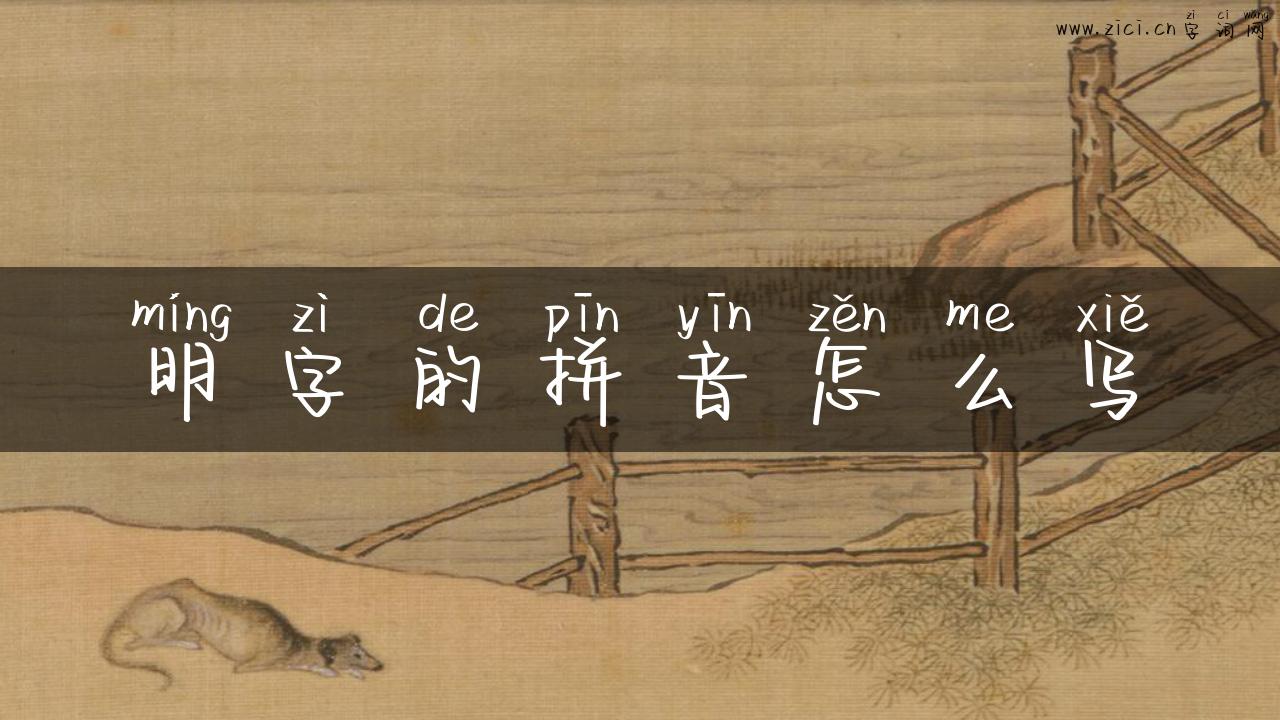 zi ci wang
www.zici.cn字词网
míng zì de pīn yīn zěn me xiě
明字的拼音怎么写